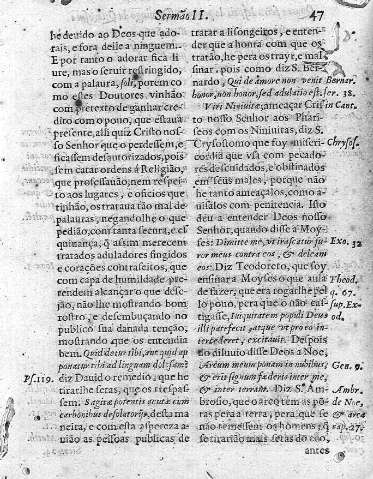 Sermão II. 47
he deuido ao Deos que ado-
rais, e fora delle a ninguem.
E por tanto o adorar fica li
ure, mas o seruir restringido,
com a palaura, soli, porem co-
mo estes Doutores vinhão
com pretexto de ganhar cre-
dito com o pouo, que estaua
presente, assi quiz Christo nos-
so Senhor que o perdessem, e
ficassem desautorizados, pois
sem catar ordens á Religião,
que professauão, nem respei-
to aos lugares, e officios que
tinhão, os trataua tão mal de
palauras, negandolhe o que
pedião, com tanta secura, e es
quiuança, q̃ assim merecem
tratados aduladores fingidos
e corações contrafeitos, que
com capa de humildade pre-
tendem alcançar o que dese-
jão, não lhe mostrando bom
rostro, e desembuçando no
publico sua danada tenção,
mostrando que os entendia
bem. Quid detur tibi, aut quid ap
ponatur tibi ad linguam dolosam?
Ps. 119. diz Dauid o remedio, que he
tirarlhe setas, que os traspas-
sem. Sagitæ potentis acutæ cum
carbonibus desolatorijs, desta ma
neira, e com esta aspereza a-
uião as pessoas publicas de
tratar a lisongeiros, e enten-
der que a honra com que os
tratão, he pera os trayr, e mal-
sinar, pois como diz S. Ber-
nardo, Qui de Amore non venit Bernar.
honor, non honor, sed adulatio est. ser. 38.
Viri Niniuitæ, ameaçar Cris in Cant.
to nosso Senhor aos Phari-
seos com os Niniuitas, diz S.
Crysostomo que foy miseri- Chrysos.
cordia que vsa com pecado-
res descuidados, e obstinados
em seus males, porque não
he tanto ameaçalos, como a-
uisalos com penitencia. Isto
deu a entender Deos nosso
Senhor, quando disse a Moy-
ses: Dimitte me, vt irascatur fu- Exo. 32
ror meus contra eos, & deleam
eos. Diz Teodoreto, que foy
ensinar a Moyses o que auia Theod.
de fazer, que era rogarlhe pel- q. 67.
lo pouo, pera que o não cas- sup. Ex-
tigasse, Iniquitatem populi Deus od.
illi patefecit, atque vt pro eo in-
tercederet, excitauit. Despois
do diluuio disse Deos a Noe,
Arcum meum ponam in nubibus, Gen. 9.
& erit signum fœderis inter me,
& inter terram. Diz S. Am- Ambr.
brosio, que o arco tem as põ- de Noe,
tas pera a terra, pera que se & arca
não temessem os homens q̃ cap. 27.
se tirarião mais setas do ceo,
antes